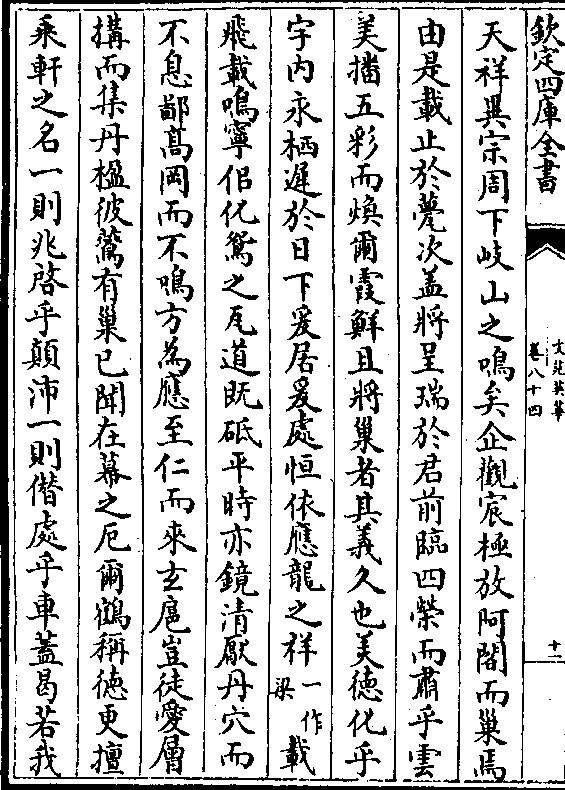 欽定四庫全書
文苑英華
卷八十四
十一
天祥異宗周下岐山之鳴矣企觀宸極放阿閣而巢焉
由是載止於薨次盖將呈瑞於君前臨四榮而肅乎雲
美播五彩而煥爾霞鮮且將巢者其義久也美德化乎
宇内永栖遲於日下爰居爰處恒依應龍之祥一作梁載
飛載鳴寧侣化鴛之瓦道既砥平時亦鏡清厭丹穴而
不息鄙髙岡而不鳴方為應至仁而來玄扈豈徒愛層
搆而集丹楹彼鷰有巢已聞在幕之厄爾鶴稱徳更擅
乘軒之名一則兆啓乎顛沛一則僭處乎車蓋曷若我